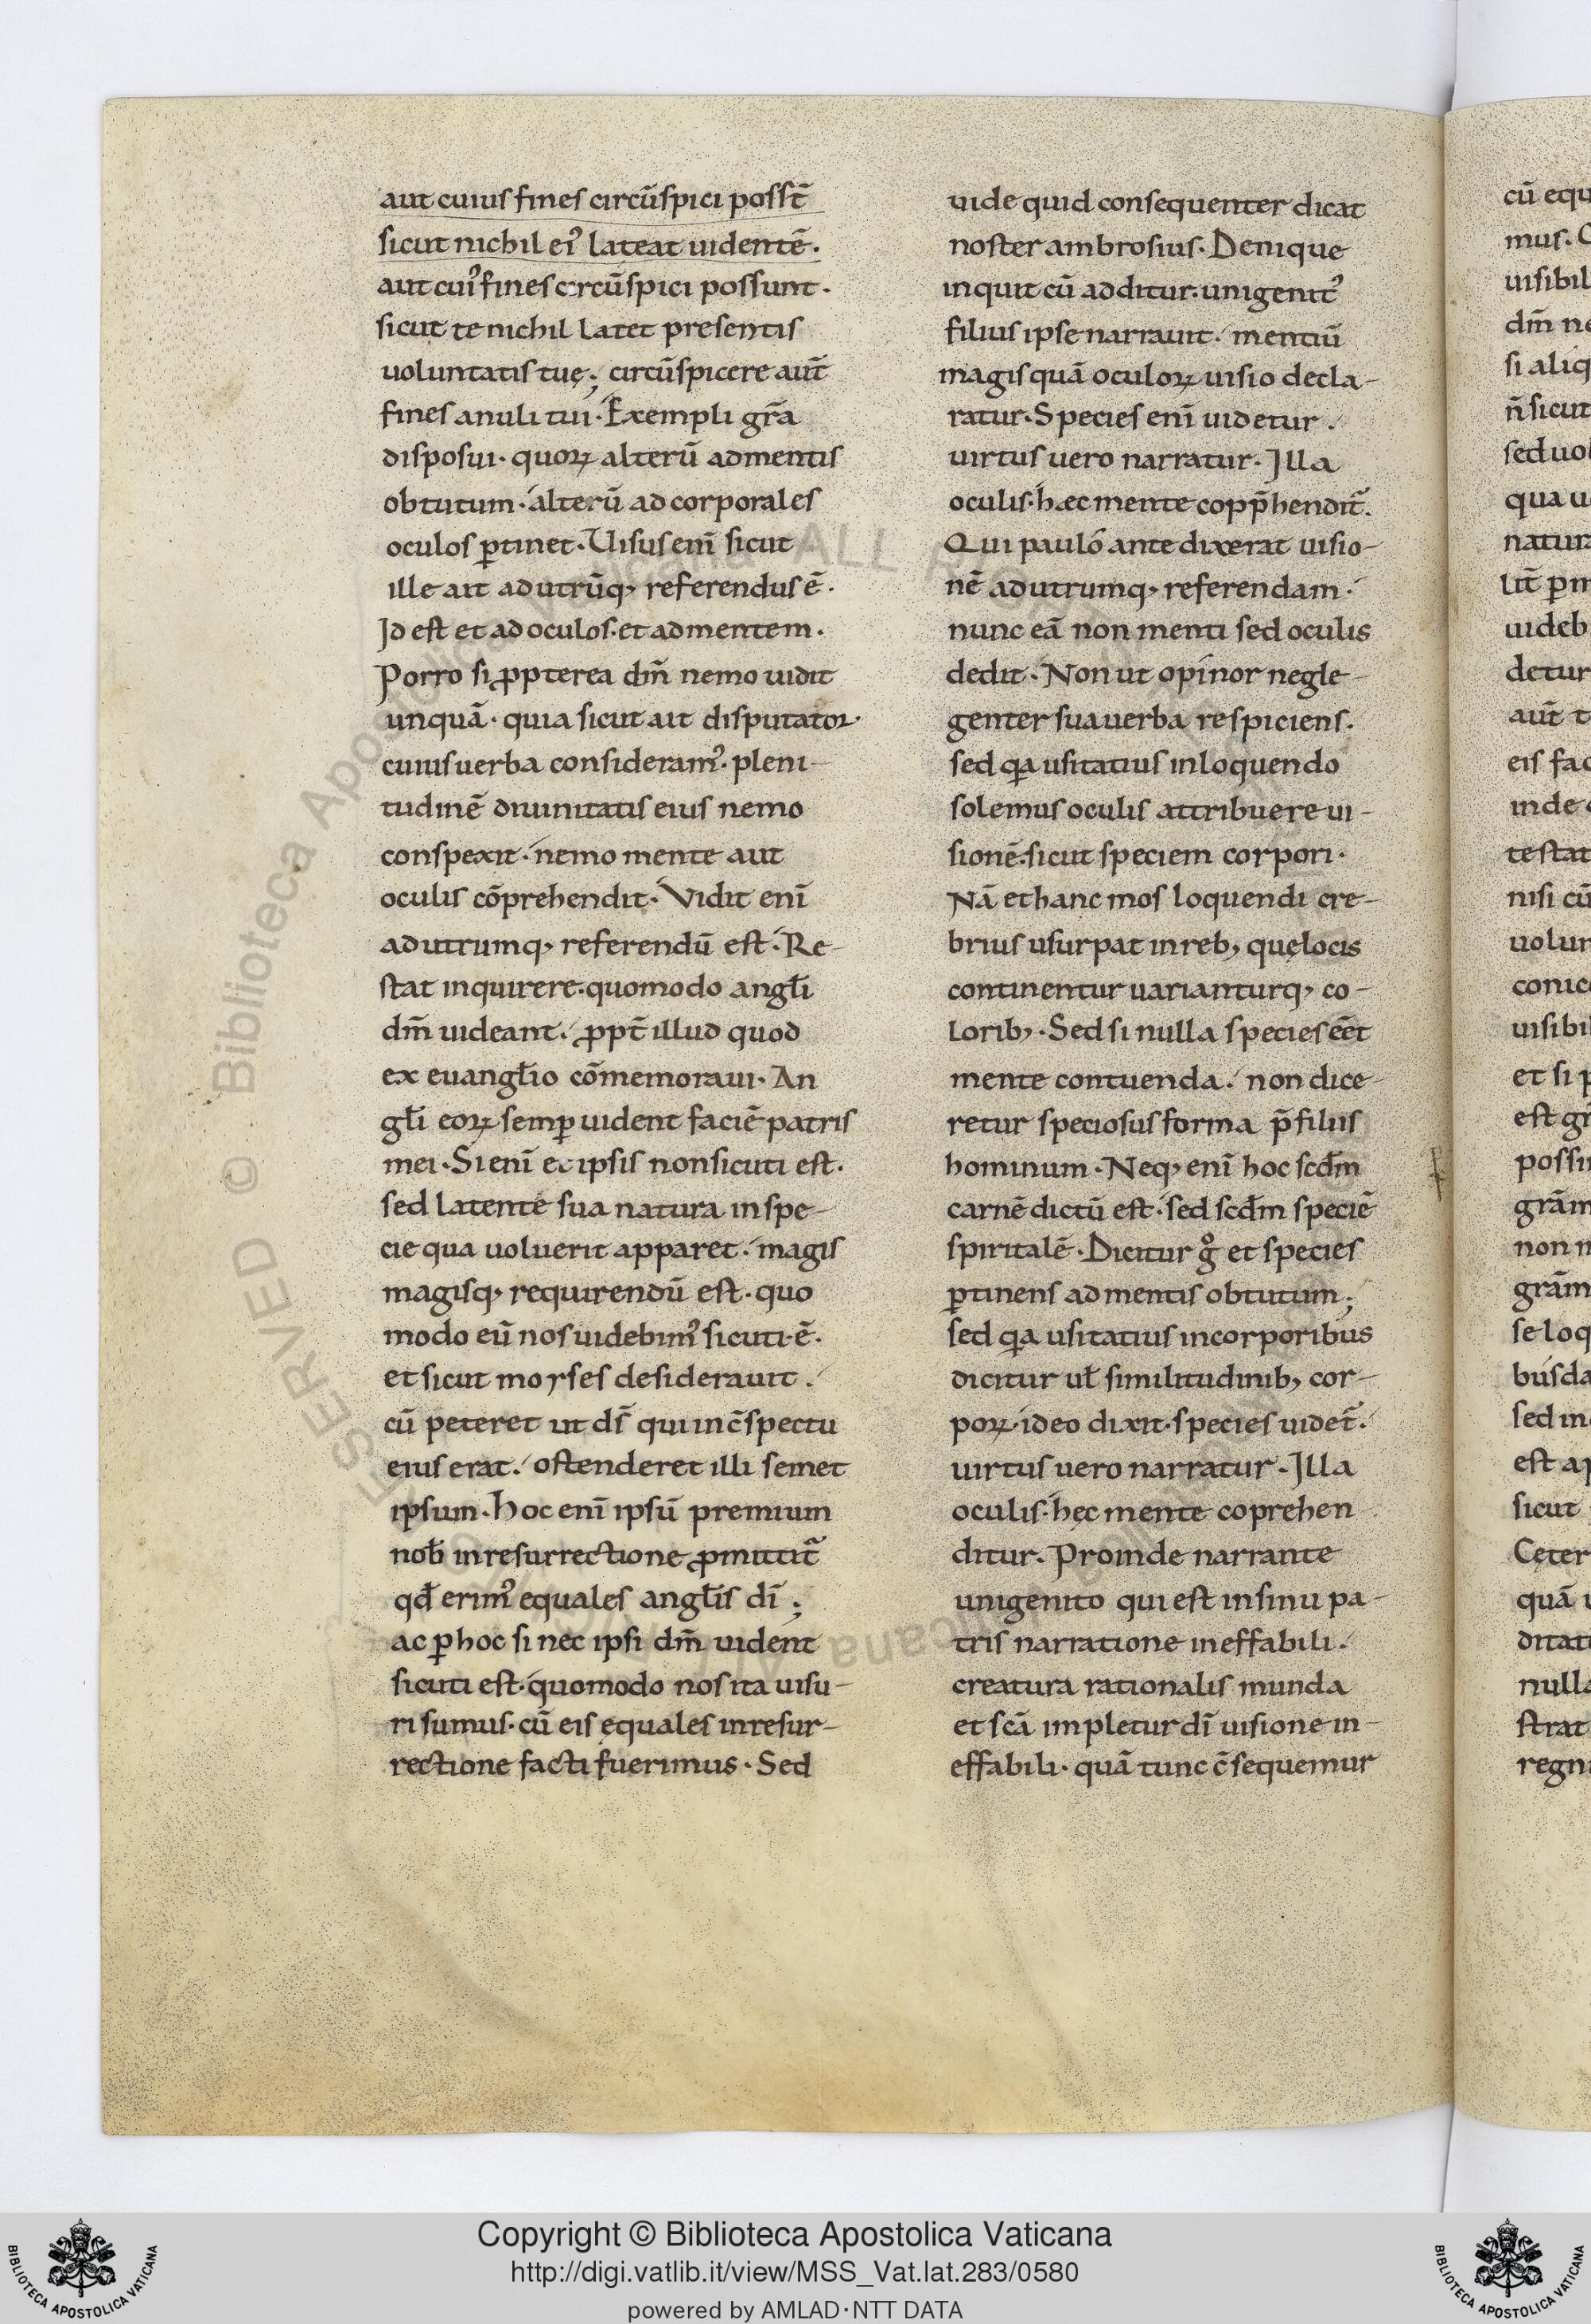 aut cuius fines circūspici posst̄
sicut nichil ei᾿ lateat uidentē.
aut cui᾿ fines circūspici possunt.
sicut te nichil latet presentis
uoluntatis tuę; circūspicere aut̄
fines anuli tui. Exempli gr̄a
disposui. quoꝝ alterū ad mentis
obtutum. alterū ad corporales
oculos ꝑtinet. Uisus enī sicut
ille ait ad utrūq, referendus ē.
Id est et ad oculos. et ad mentem.
Porro si ꝓpterea dm̄ nemo uidit
unquā. quia sicut ait disputator.
cuius uerba consideram᾿. pleni-
tudinē diuinitatis eius nemo
conspexit. nemo mente aut
oculis cōprehendit. Vidit enī
ad utrumq, referendū est. Re-
stat inquirere. quomodo angl̄i
dm̄ uideant. ꝓpt̄ illud quod
ex euangl̄io cōmemoraui. An
gl̄i eoꝝ semꝑ uident faciē patris
mei. Si enī et ipsis non sicuti est.
sed latente sua natura in spe-
cie qua uoluerit apparet. magis
magisq, requirendū est. quo
modo eū nos uidebim᾿ sicuti ē.
et sicut moyses desiderauit.
cū peteret ut ds̄ qui in c̄spectu
eius erat. ostenderet illi semet
ipsum. hoc enī ipsū premium
nob̄ in resurrectione ꝓmittit᷑
qd̄ erim᾿ equales angl̄is dī;
ac ꝑ hoc si nec ipsi dm̄ uident
sicuti est. quomodo nos ita uisu-
ri sumus. cū eis ęquales in resur-
rectione facti fuerimus. Sed
uide quid consequenter dicat
noster ambrosius. Denique
inquit cū additur. unigenit᾿
filius ipse narrauit. mentiū
magis quā oculoꝝ uisio decla-
ratur. Species enī uidetur.
uirtus uero narratur. Illa
oculis. hæc mente copp̄hendit᷑.
Qui pauló ante dixerat uisio-
nē ad utrumq, referendam.
nunc eā non menti sed oculis
dedit. Non ut opinor negle-
genter sua uerba respiciens.
sed qa usitatius in loquendo
solemus oculis attribuere ui-
sionē. sicut speciem corpori.
Nā et hanc mos loquendi cre-
brius usurpat in reb, quę locis
continentur uarianturq, co-
lorib,. Sed si nulla species eēt
mente contuenda. non dice-
retur speciosus forma p̄ filiis
hominum. Neq, enī hoc scd̄m
carnē dictū est. sed scd̄m speciē
spiritalē. Dicitur g̊ et species
ꝑtinens ad mentis obtutum;
sed qa usitatius in corporibus
dicitur ul̄ similitudinib, cor-
poꝝ. ideo dixit. species uidet᷑.
uirtus uero narratur. Illa
oculis. hęc mente coprehen
ditur. Proinde narrante
unigenito qui est in sinu pa-
tris narratione ineffabili.
creatura rationalis munda
et scā impletur dī uisione in-
effabili. quā tunc c̄sequemur
cū equ
mus.
uisibil
dm̄ ne
si aliq
n̄ sicut
sed uol
qua u
natura
lit̄ ꝑm
uideb
detur
aut̄ t
eis fac
inde
testat
nisi cū
uolun
conic
uisibi
et si p
est gr
possin
grām
non n
grām
se loq
busda
sed in
est ap
sicut
Cęter
quā u
ditat
nulla
strat
regni
© Biblioteca Apostolica Vaticana ALL RIGHTS RESERVED
Copyright © Biblioteca Apostolica Vaticana
http://digi.vatlib.it/view/MSS_Vat.lat.283/0580
powered by AMLAD·NTT DATA
BIBLIOTECA APOSTOLICA VATICANA
BIBLIOTECA APOSTOLICA VATICANA